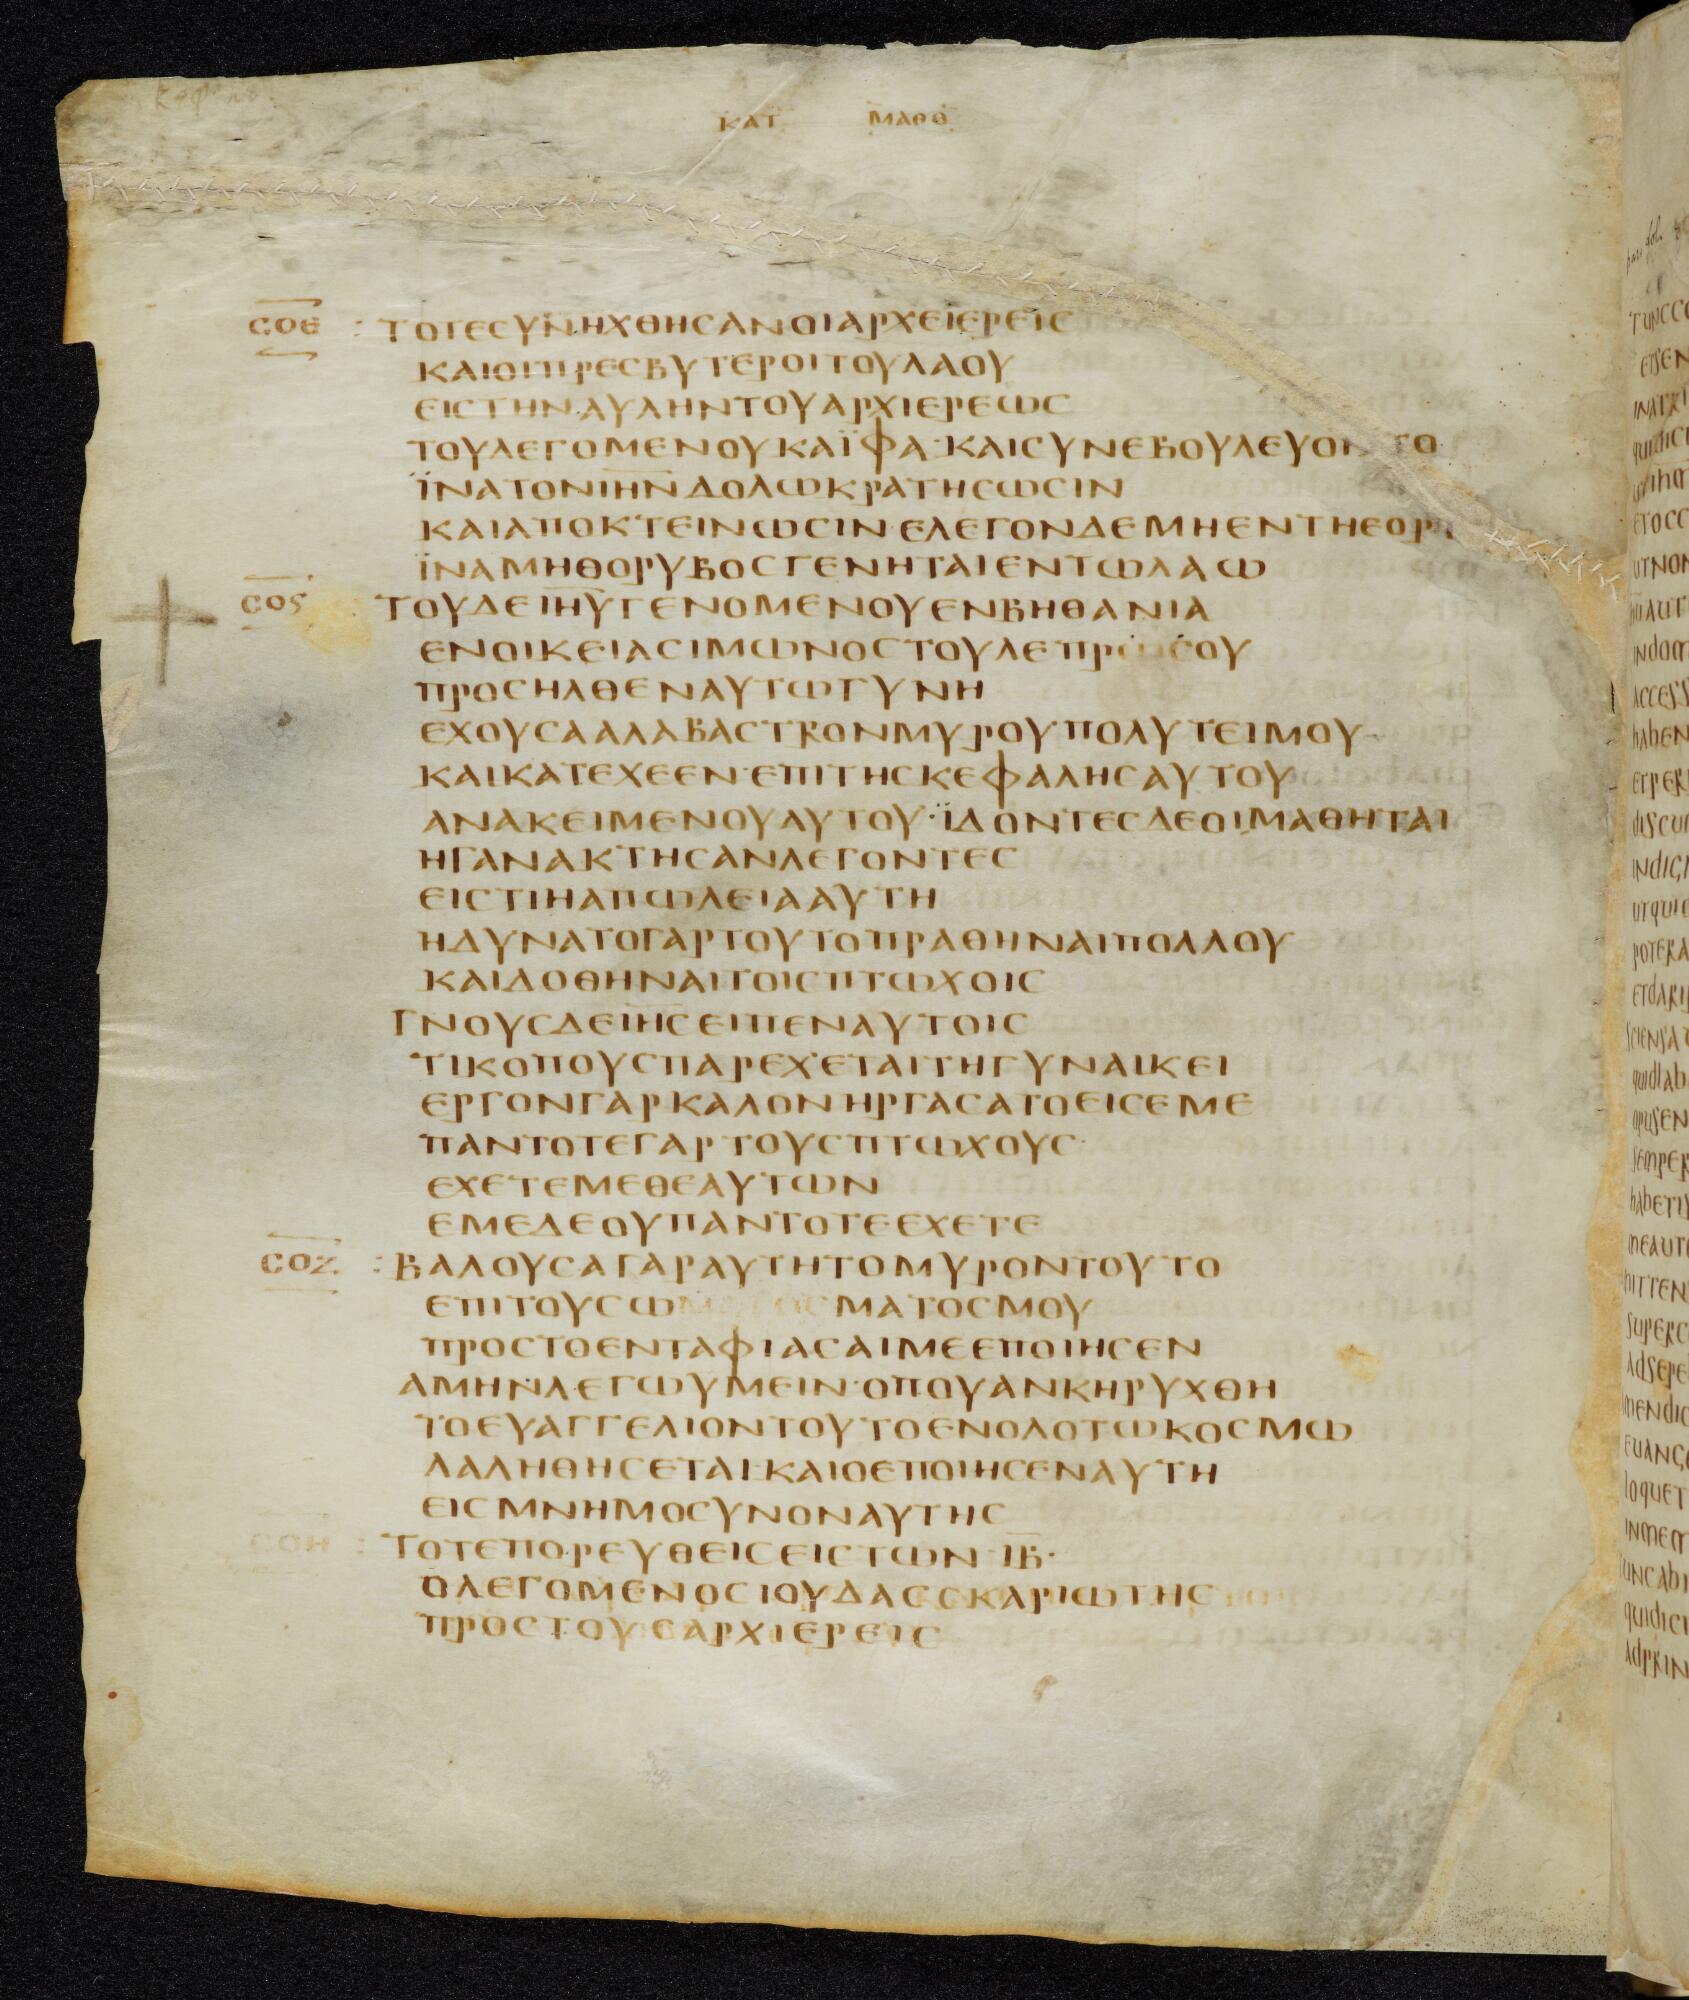 ΚΑΤ ΜΑΘΘ
ϹΟΕ ΤΟΤΕϹΥΝΗΧΘΗϹΑΝΟΙΑΡΧΕΙΕΡΕΙϹ
ΚΑΙΟΙΠΡΕϹΒΥΤΕΡΟΙΤΟΥΛΑΟΥ
ΕΙϹΤΗΝΑΥΛΗΝΤΟΥΑΡΧΙΕΡΕωϹ
ΤΟΥΛΕΓΟΜΕΝΟΥΚΑΪΦΑ·ΚΑΙϹΥΝΕΒΟΥΛΕΥΟΝΤΟ
ΪΝΑΤΟΝΙΗΝΔΟΛωΚΡΑΤΗϹωϹΙΝ
ΚΑΙΑΠΟΚΤΕΙΝωϹΙΝ·ΕΛΕΓΟΝΔΕΜΗΕΝΤΗΕΟΡ
ΪΝΑΜΗΘΟΡΥΒΟϹΓΕΝΗΤΑΙΕΝΤωΛΑω
ϹΟϛ ΤΟΥΔΕΙΗΥΓΕΝΟΜΕΝΟΥΕΝΒΗΘΑΝΙΑ
ΕΝΟΙΚΕΙΑϹΙΜωΝΟϹΤΟΥΛΕΠΡωϹΟΥ
ΠΡΟϹΗΛΘΕΝΑΥΤωΓΥΝΗ
ΕΧΟΥϹΑΑΛΑΒΑϹΤΡΟΝΜΥΡΟΥΠΟΛΥΤΕΙΜΟΥ
ΚΑΙΚΑΤΕΧΕΕΝ·ΕΠΙΤΗϹΚΕΦΑΛΗϹΑΥΤΟΥ
ΑΝΑΚΕΙΜΕΝΟΥΑΥΤΟΥ·ΪΔΟΝΤΕϹΔΕΟΙΜΑΘΗΤΑΙ
ΗΓΑΝΑΚΤΗϹΑΝΛΕΓΟΝΤΕϹ
ΕΙϹΤΙΗΑΠωΛΕΙΑΑΥΤΗ
ΗΔΥΝΑΤΟΓΑΡΤΟΥΤΟΠΡΑΘΗΝΑΙΠΟΛΛΟΥ
ΚΑΙΔΟΘΗΝΑΙΤΟΙϹΠΤωΧΟΙϹ
ΓΝΟΥϹΔΕΙΗϹΕΙΠΕΝΑΥΤΟΙϹ
ΤΙΚΟΠΟΥϹΠΑΡΕΧΕΤΑΙΤΗΓΥΝΑΙΚΕΙ
ΕΡΓΟΝΓΑΡΚΑΛΟΝΗΡΓΑϹΑΤΟΕΙϹΕΜΕ
ΠΑΝΤΟΤΕΓΑΡΤΟΥϹΠΤωΧΟΥϹ
ΕΧΕΤΕΜΕΘΕΑΥΤωΝ
ΕΜΕΔΕΟΥΠΑΝΤΟΤΕΕΧΕΤΕ
ϹΟΖ ΒΑΛΟΥϹΑΓΑΡΑΥΤΗΤΟΜΥΡΟΝΤΟΥΤΟ
ΕΠΙΤΟΥϹωΜΑΤΟϹΜΟΥ
ΠΡΟϹΤΟΕΝΤΑΦΙΑϹΑΙΜΕΕΠΟΙΗϹΕΝ
ΑΜΗΝΛΕΓωΥΜΕΙΝ·ΟΠΟΥΑΝΚΗΡΥΧΘΗ
ΤΟΕΥΑΓΓΕΛΙΟΝΤΟΥΤΟΕΝΟΛΟΤωΚΟϹΜω
ΛΑΛΗΘΗϹΕΤΑΙ·ΚΑΙΟΕΠΟΙΗϹΕΝΑΥΤΗ
ΕΙϹΜΝΗΜΟϹΥΝΟΝΑΥΤΗϹ
ϹΟΗ ΤΟΤΕΠΟΡΕΥΘΕΙϹΕΙϹΤωΝ·ΙΒ·
ΟΛΕΓΟΜΕΝΟϹΙΟΥΔΑϹϹΚΑΡΙωΤΗϹ
ΠΡΟϹΤΟΥϹΑΡΧΙΕΡΕΙϹ